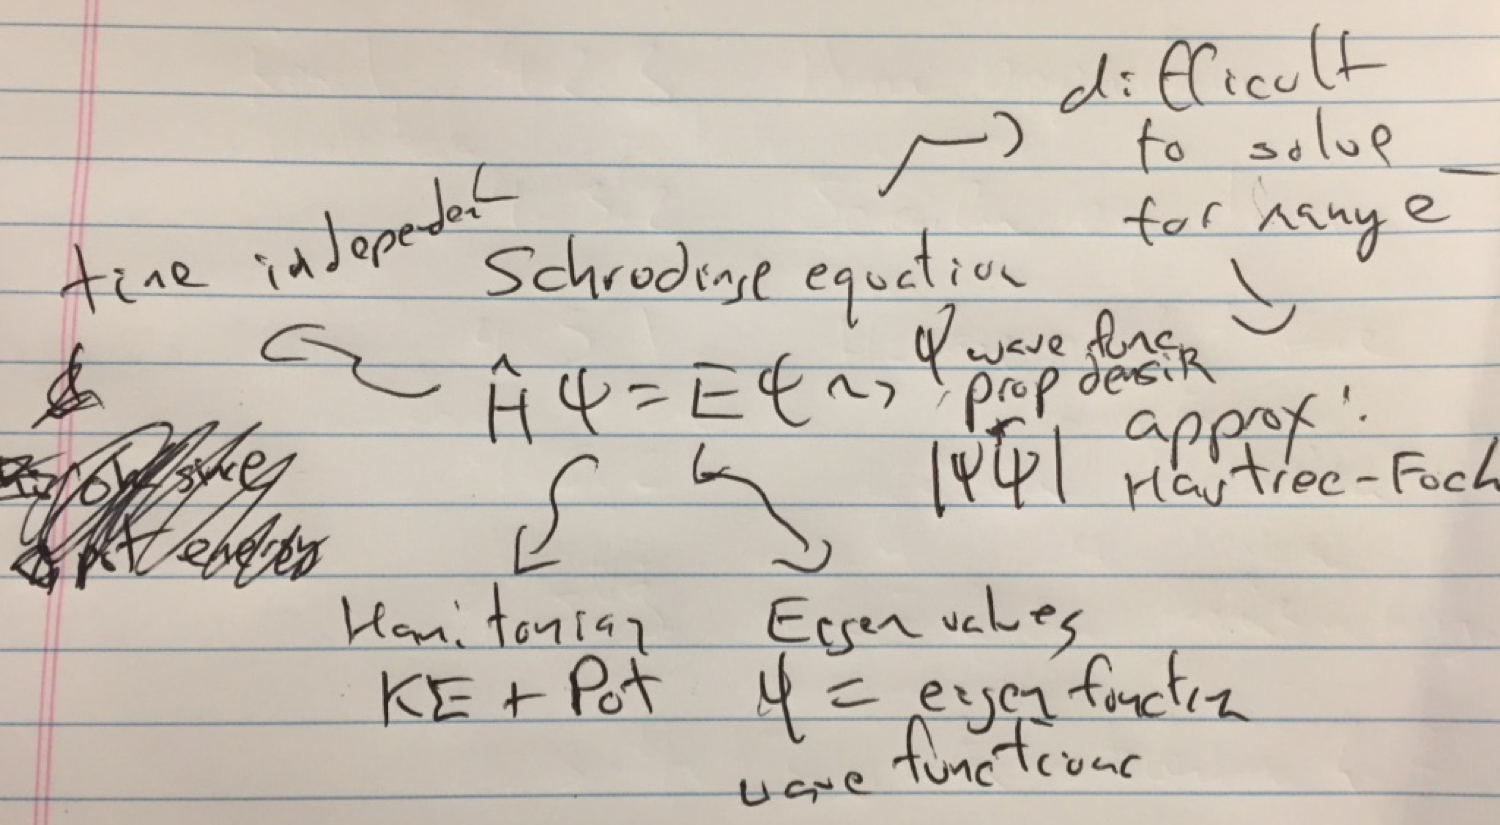 difficult
to solve
for many e⁻
time independent
Schrodinge equation
Ĥ ψ = E ψ ~> ψ wave func
prop densit
|ψ ψ|
approx:
Hartree-Foch
pot energy
Hamitonian
KE + Pot
Eigen values
ψ = eigen function
wave functions